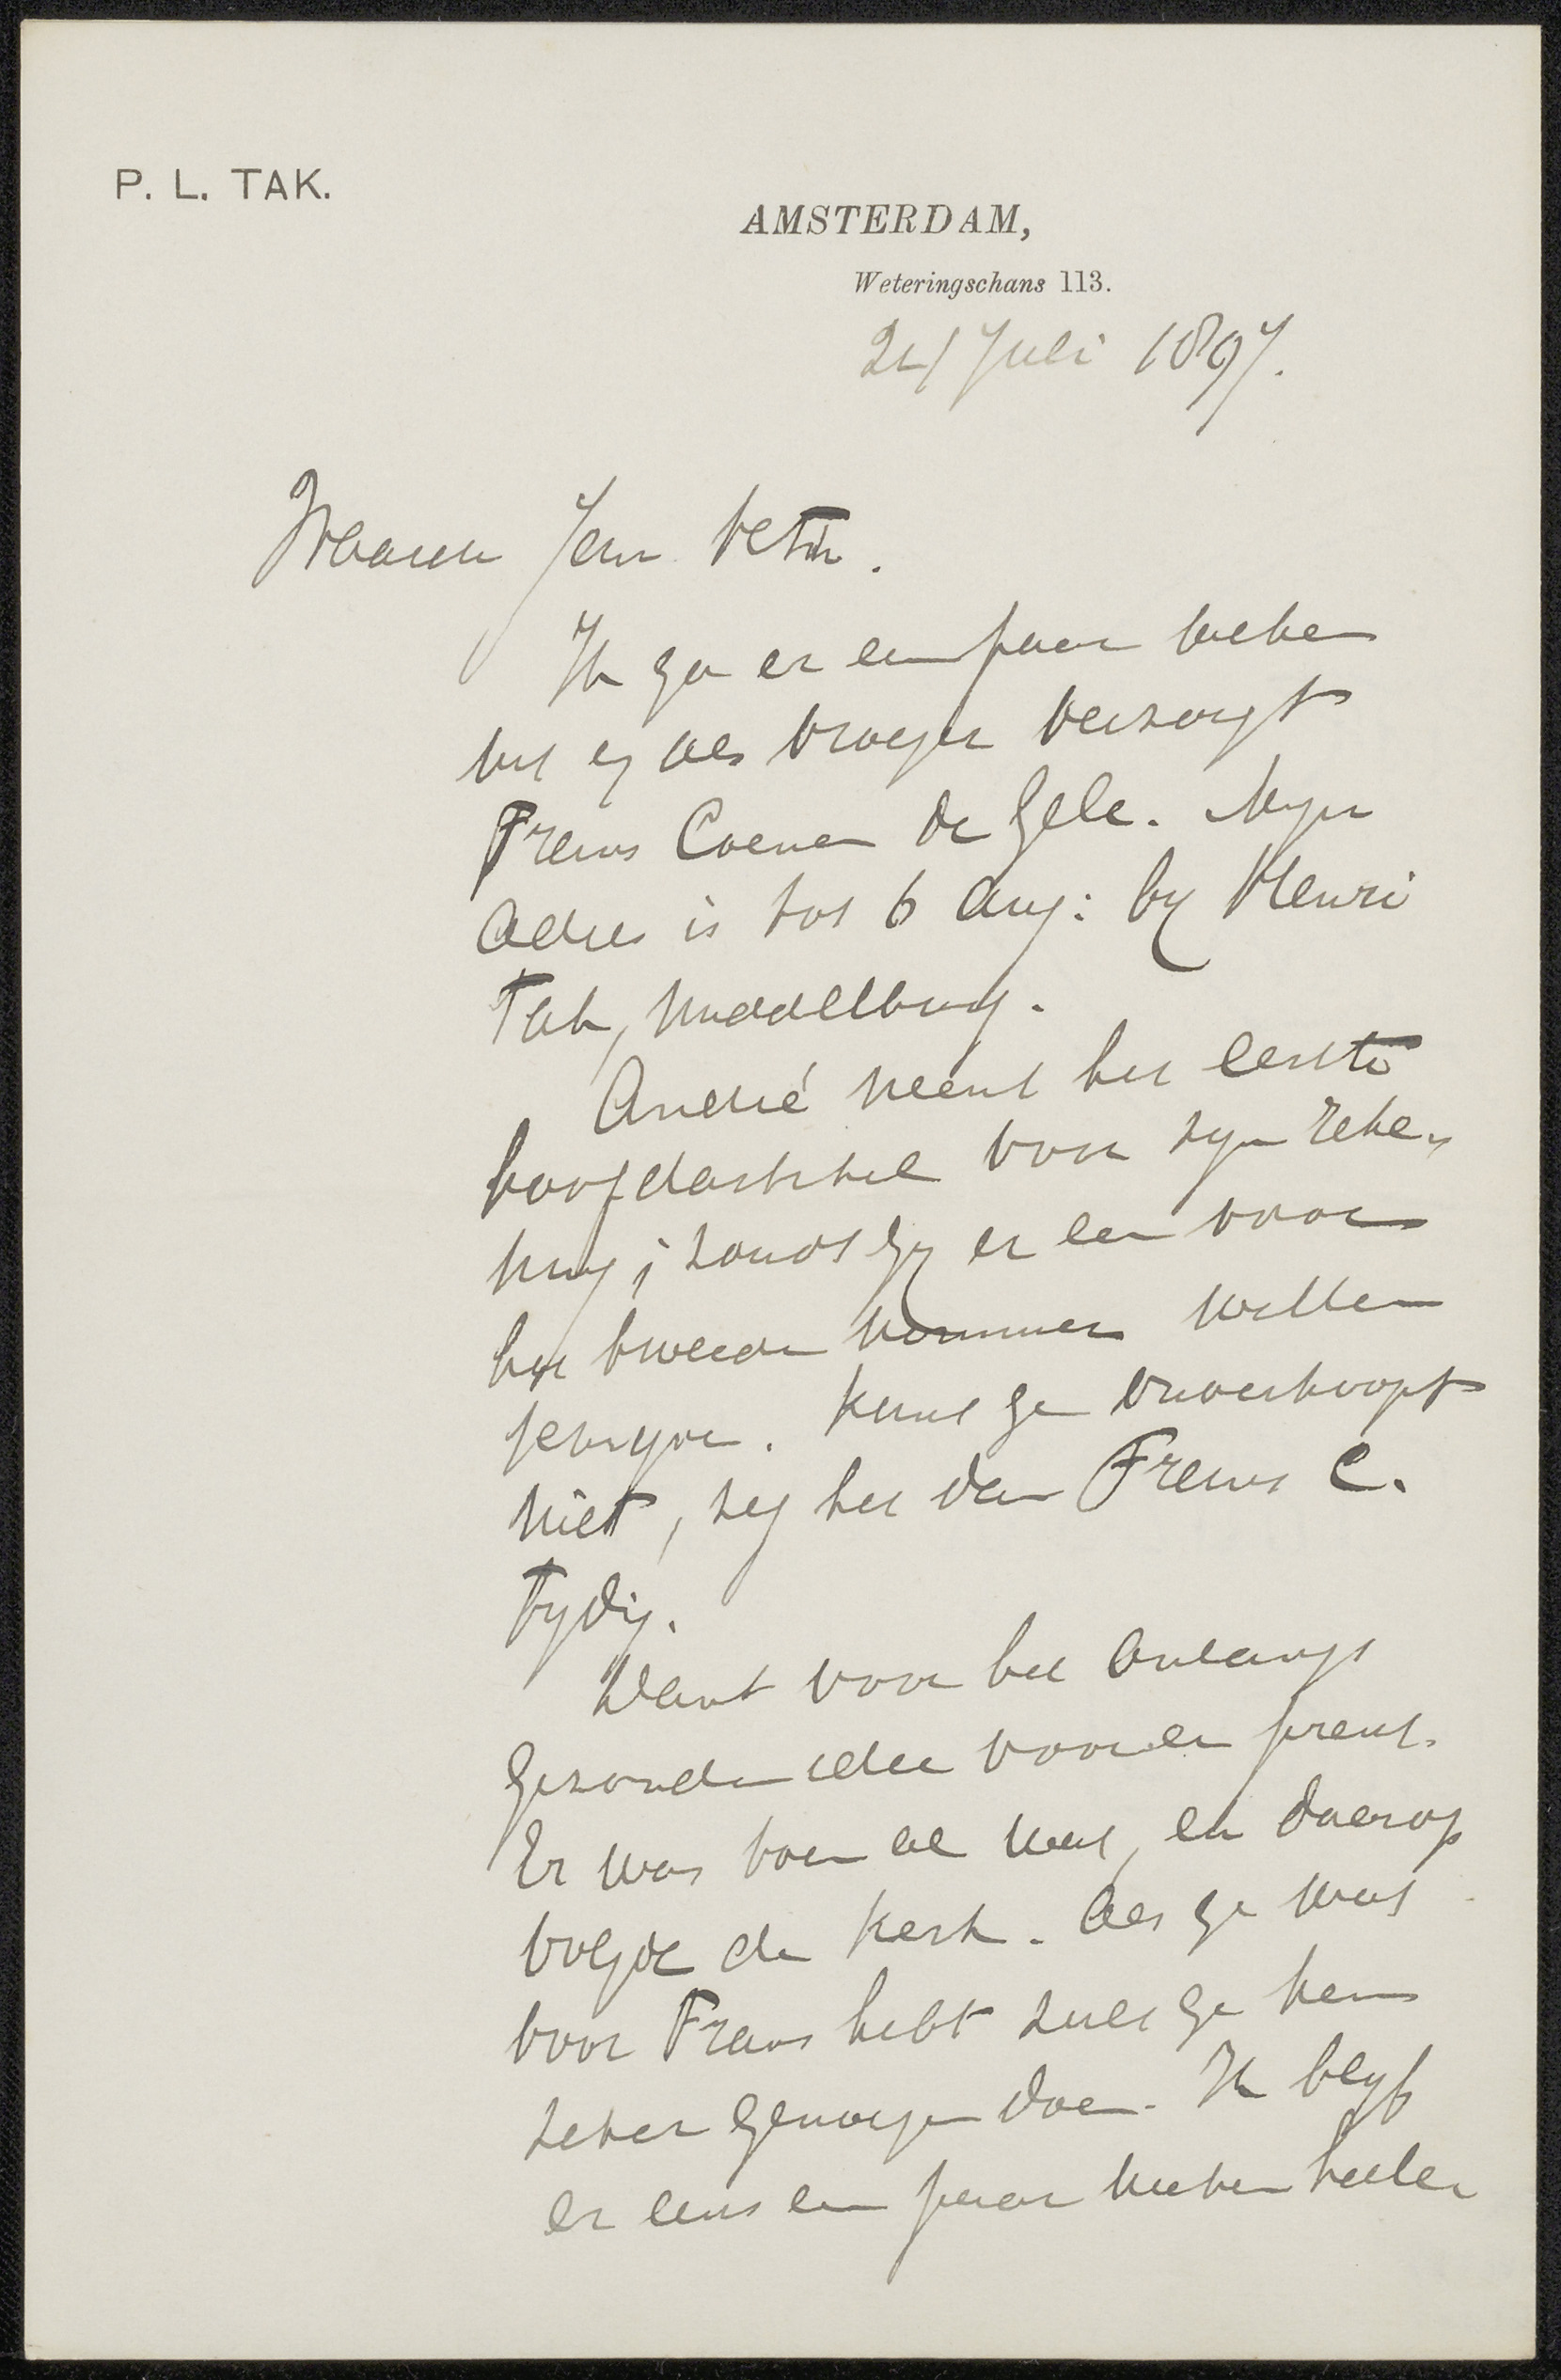 P. L. TAK.
AMSTERDAM,
Weteringschans 113.
24 Juli 1897.
Waarde Jan Veth.
Ik ga er een paar weken
uit en als vroeger verzorgt
Frans Coenen de Gele. Mijn
adres is tot 6 Aug: by Henri
Tak, Middelburg.
André neemt het eerste
hoofdartikel voor zijn reke-
ning; zoudt gij er een voor
het tweede nummer willen
. Kunt ge onverhoopt
niet, zeg het dan Frans C.
tydig.
Dank voor het onlangs
gezonden idee voor een prent.
Er was toen al wat, en daarop
volgde de Kerk. Als ge wat
voor Frans hebt zult ge hem
zeker genoegen doen. Ik blyf
er eens een paar weken buiten